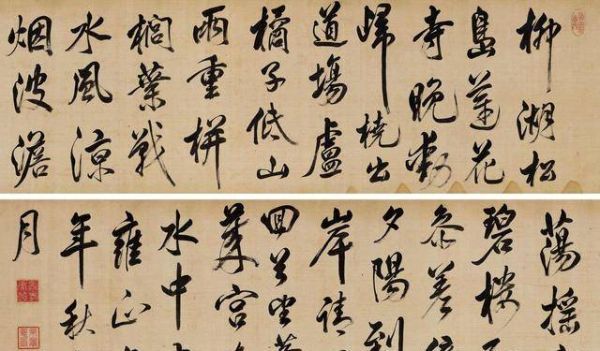 柳湖松
島蓮花
寺晚動
歸橈出
道場盧
橘子低山
雨重栟
櫚葉戰
水風涼
烟波澹
蕩搖
碧樓
參差倚
夕陽到
岸請
回首望蓬
萊宮
水中
雍正
年秋
月